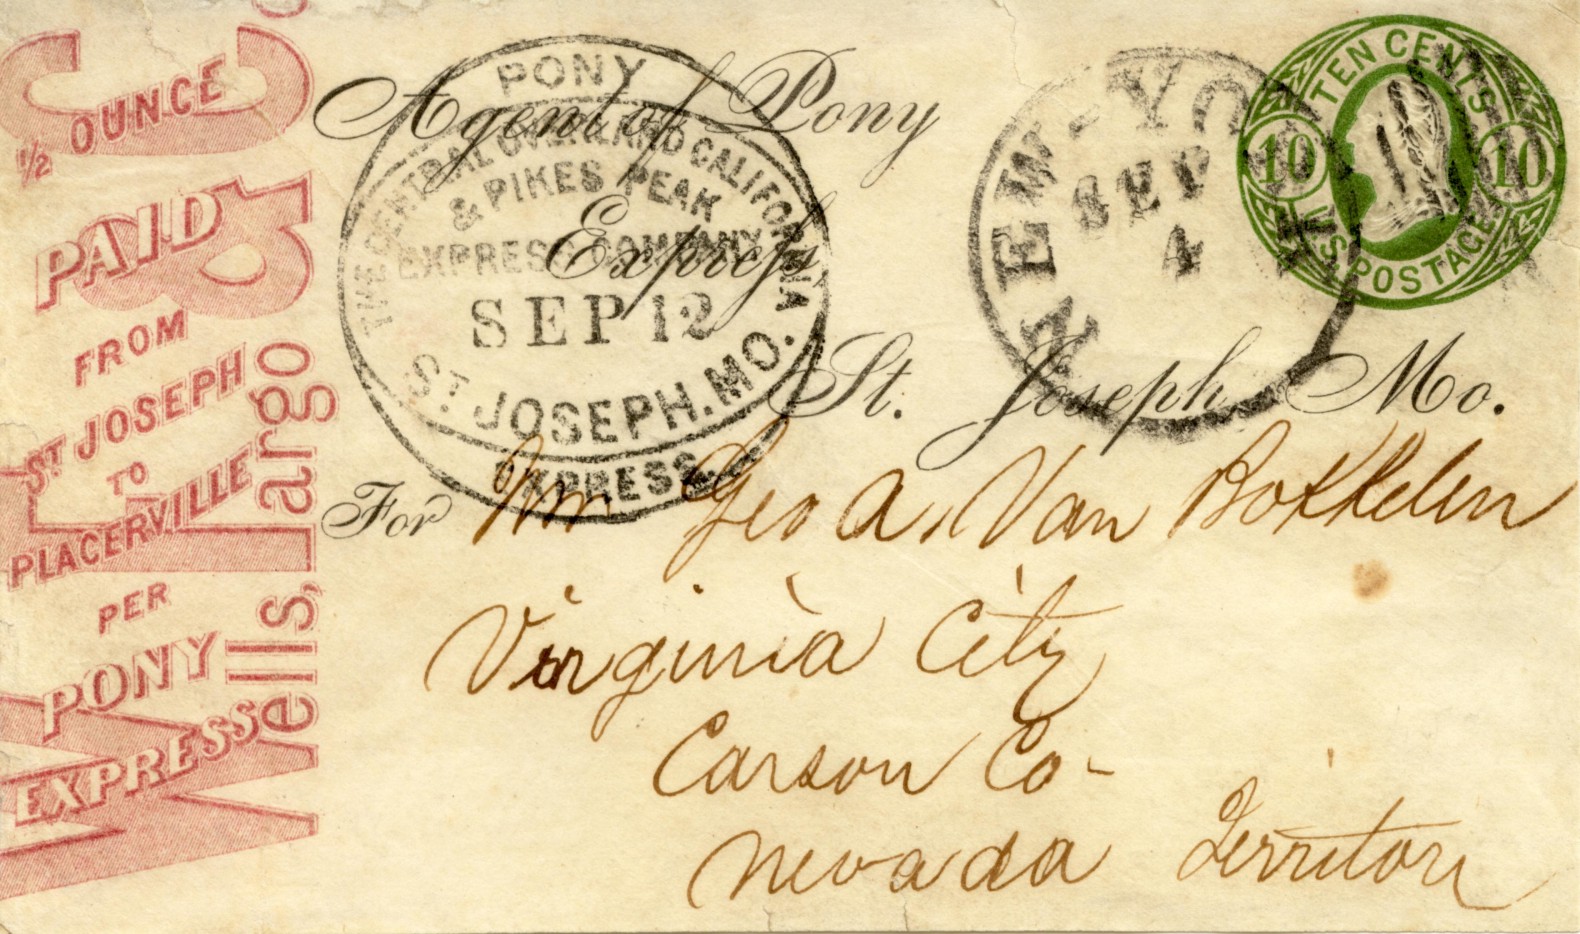 ½ OUNCE
PAID
FROM
ST JOSEPH
TO
PLACERVILLE
PER
PONY
EXPRESS
Wells, Fargo & Co
PONY
THE CENTRAL OVERLAND CALIFORNIA
& PIKES PEAK
EXPRESS COMPANY
SEP 12
ST. JOSEPH. MO.
EXPRESS.
NEW-YO
SEP
4
TEN CENTS
10 10
U.S. POSTAGE
Agent of Pony
Express
St. Joseph Mo.
For Wm Geo A. Van Bokkelen
Virginia City
Carson Co-
Nevada Territory